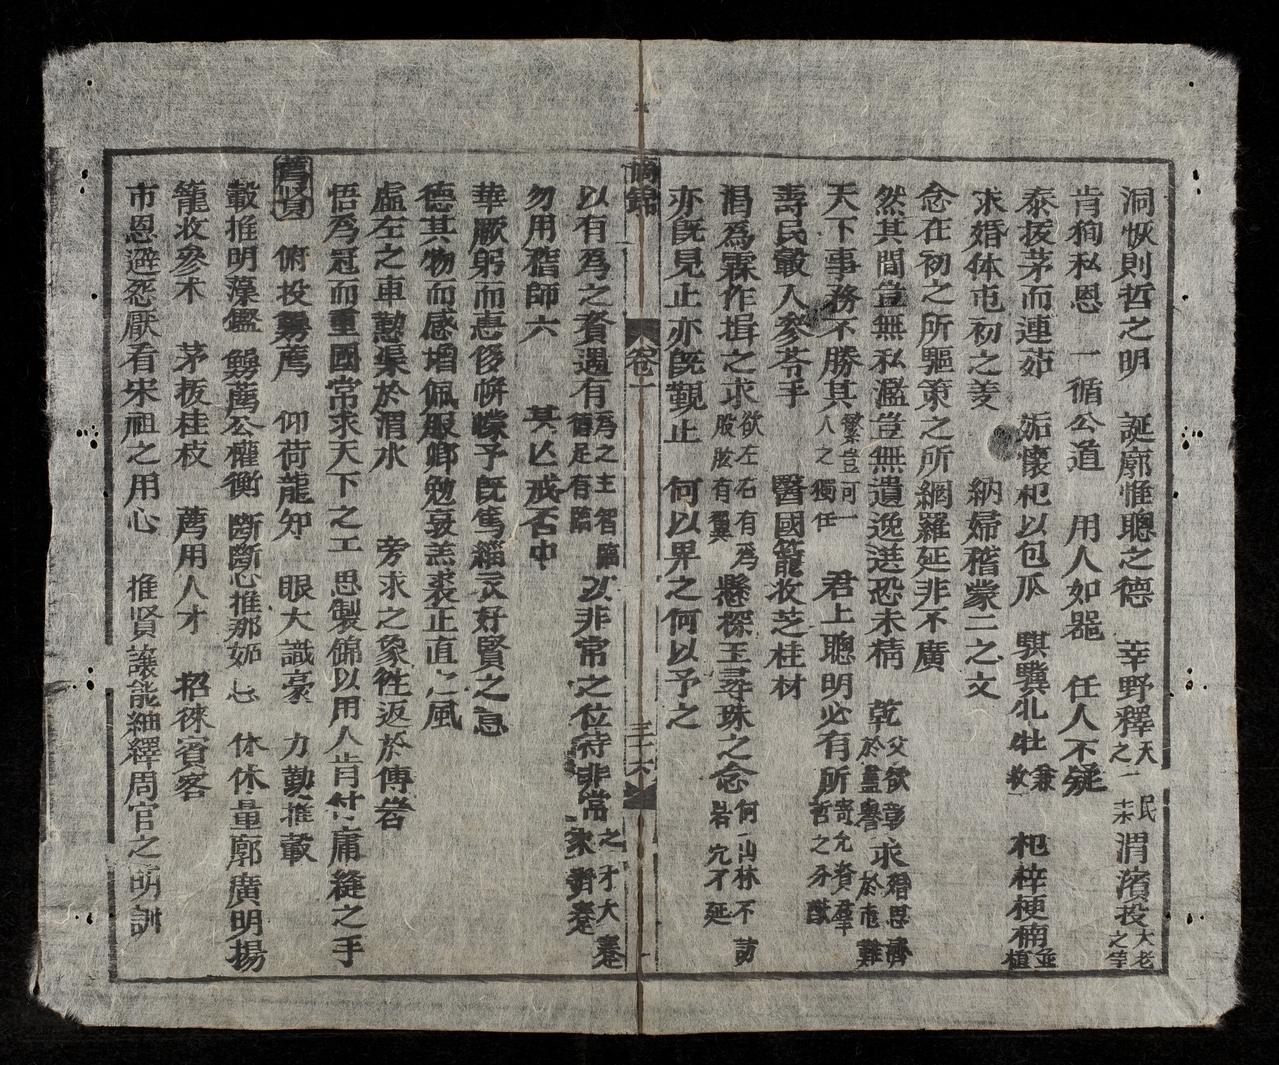 洞恢則哲之明 誕廓惟聰之德 莘野釋天民之一耒 渭濱投大老之竿
肯狥私恩 一循公道 用人如器 任人不疑
泰拔茅而連茹 姤懷杞以包瓜 騏驥牝牡兼收 杞梓梗楠並植
求婚体屯初之羑 納婦稽蒙二之文
念在初之所驅策之所網羅延非不廣
然其間豈無私濫豈無遺逸選恐未精 乾父欲彰於蠱譽 求濟恩於屯難
天下事務不勝其繁豈可一人之獨任 君上聰明必有所寄允資羣哲之分猷
壽民載入參苓手 醫國籠收芝桂材
渴爲霖作揖之求欲左右有爲股肱有翼 懸探玉尋珠之念何山林不訪岩穴才延
亦旣見止亦旣覯止 何以畀之何以予之
謫錦 卷一 三十六
以有爲之資遇有爲之主智臨足有臨 以非常之位待非常之才大蹇來對蹇
勿用稽師六 其亡戒否中
華厥躬而憲俊帡幪予旣篤緇衣好賢之意
德其物而感增佩服卿勉哀羔裘正直之風
虛左之車懃渠於渭水 旁求之象徃返於傅岩
悟爲冠而重國常求天下之工 思製錦以用人肯付庸縫之手
薦賢 俯投鶚薦 仰荷龍知 眼大識豪 力勤推轂
轂推明藻鑑 鶚薦公權衡 斷斷心推那妬忌 休休量廓廣明揚
籠收參朮 茅拔桂枝 薦用人才 招徠賓客
市恩避怨厭看宋祖之用心 推賢讓能紬繹周官之明訓